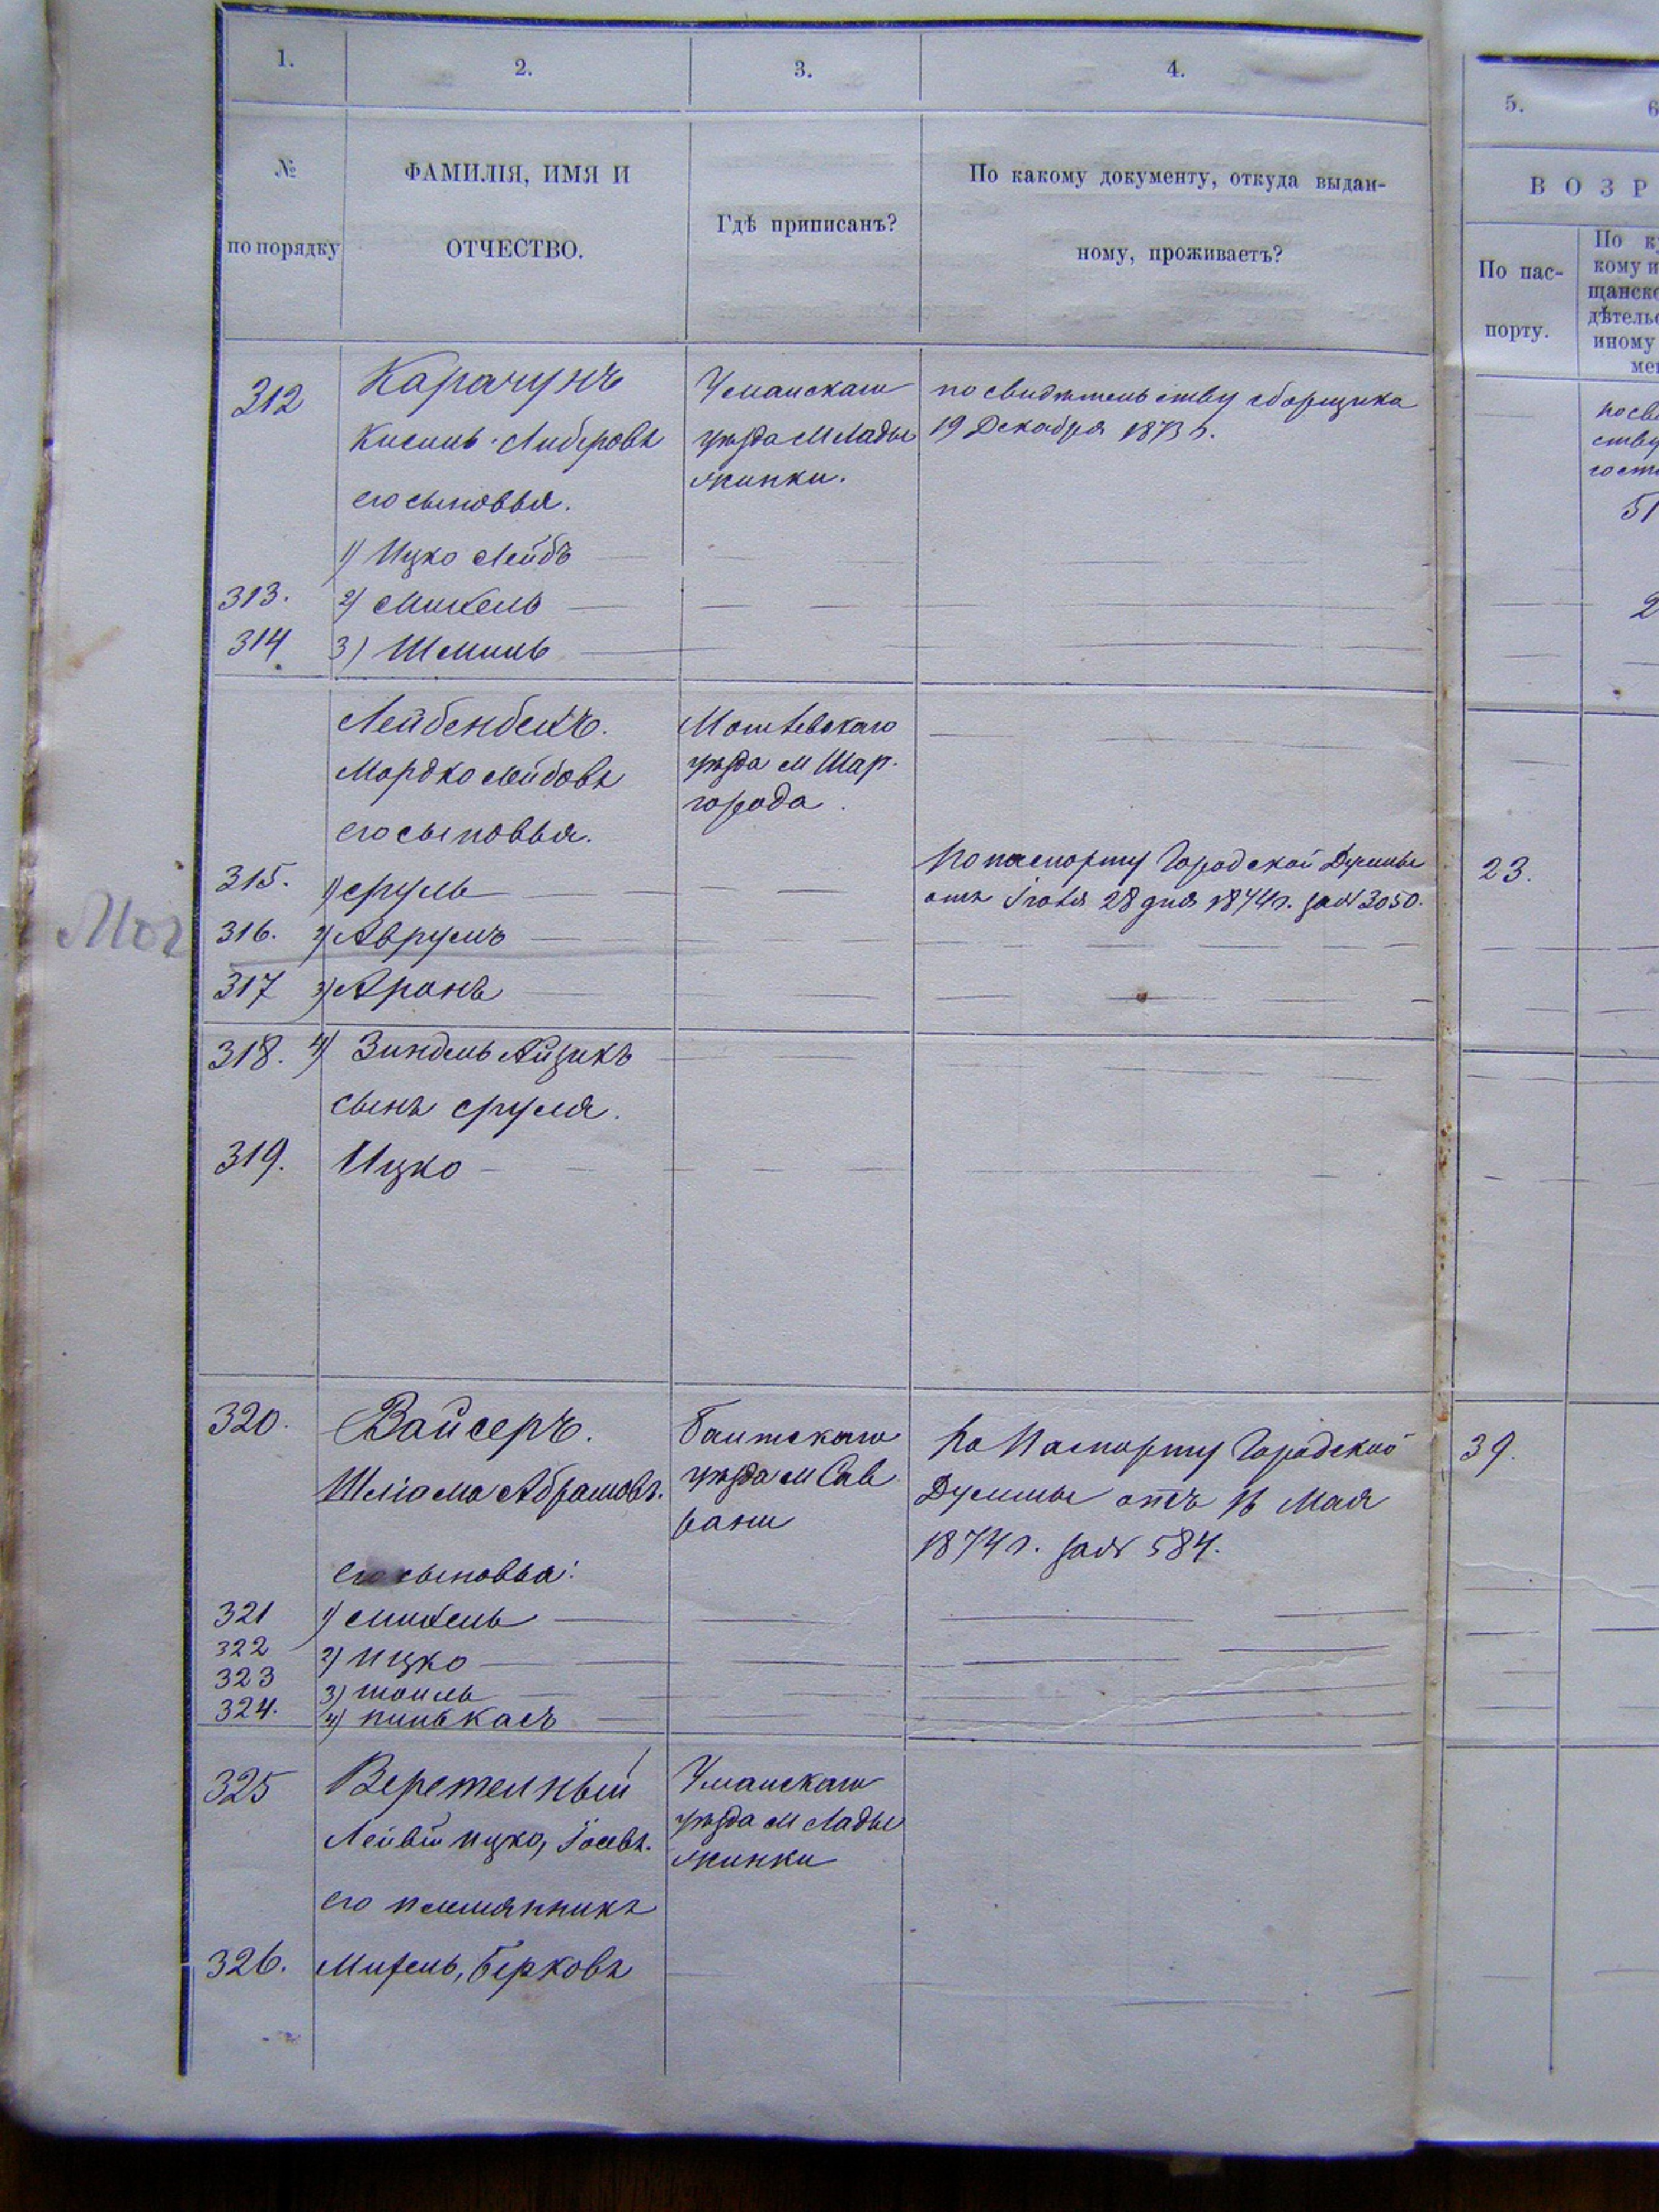 1.
2.
3.
4.
5.
6
№
по порядку
ФАМИЛІЯ, ИМЯ И
ОТЧЕСТВО.
Гдѣ приписанъ?
По какому документу, откуда выдан-
ному, проживаетъ?
ВОЗР
По пас-
порту.
По к
кому и
щанско
дѣтельс
иному
мен
312
Карачунъ
Уманскаго
по свидѣтельству сборщика
Кисиль Либеровъ
уѣзда М Лады
19 Декабря 1873 г.
его сыновья.
жинки.
51
1) Ицко Лейбъ
313.
2) Михель
2
314
3) Шмиль
Лейбенбехъ.
Могилевскаго
Мордко Лейбовъ
уѣзда М Шар-
города.
его сыновья.
315.
1) Сруль
По паспорту Городской Думы
отъ Іюля 28 дня 1874 г. за № 3050.
23.
Мог
316.
2) Аврумъ
317
3) Аронъ
318.
4) Зиндель Айзикъ
сынъ Сруля.
319.
Ицко
320.
Вайсеръ.
Балтскаго
По Паспорту Городской
39.
Шліома Абрамовъ.
уѣзда М Сав
Думы отъ 16 Мая
рани
1874 г. за № 584.
его сыновья:
321
1) Михель
322
2) Ицко
323
3) Шоиль
324.
4) Пинькасъ
325
Веретелный
Уманскаго
Лейви Ицко, Іосевъ.
уѣзда М Лады
жинки
его племянникъ
326.
Михель, Берковъ